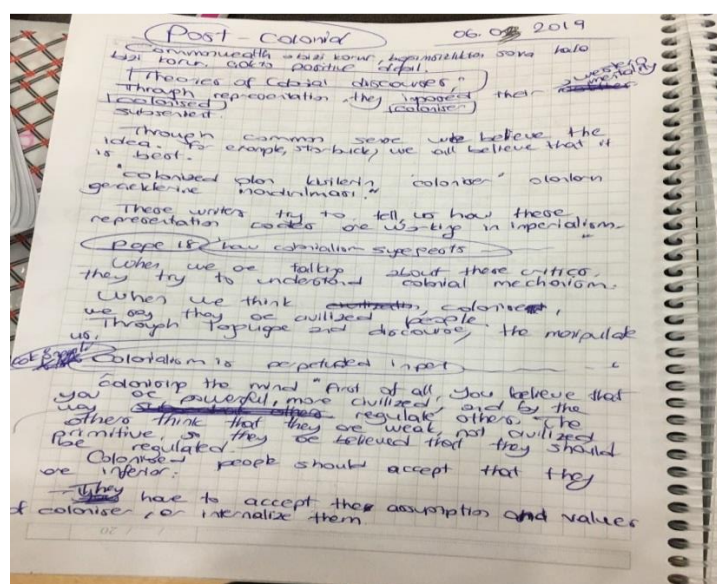 Post - Colonial
06. 2019
Commonwealth → bizi korur, bağımsızlıktan sonra hala
bizi korur, çokta positive değil.
"Theories of Colonial discourses,"
Through representation, they imposed their western mentality
colonised coloniser
subservient.
Through common sense we believe the
idea. for example, starbucks, we all believe that it
is best.
"colonized olan kişilerin "coloniser" olanların
gerçeklerine inandırılması."
These writers try to tell us how these
representation codes are working in imperialism.
Page 18 how colonialism suggests
When we are talking about these critics,
they try to understand colonial mechanism.
When we think coloniser,
we say they are civilized people.
Through language and discourse, the manipulate
us.
Colonialism is perpetuated in part
Colonising the mind "first of all, you believe that
you are powerful, more civilized and by the
way regulate others. The
others think that they are weak, not civilized
primitive, so they are believed that they should
be regulated.
Colonised people should accept that they
are inferior.
They have to accept the assumption and values
of coloniser, or internalize them